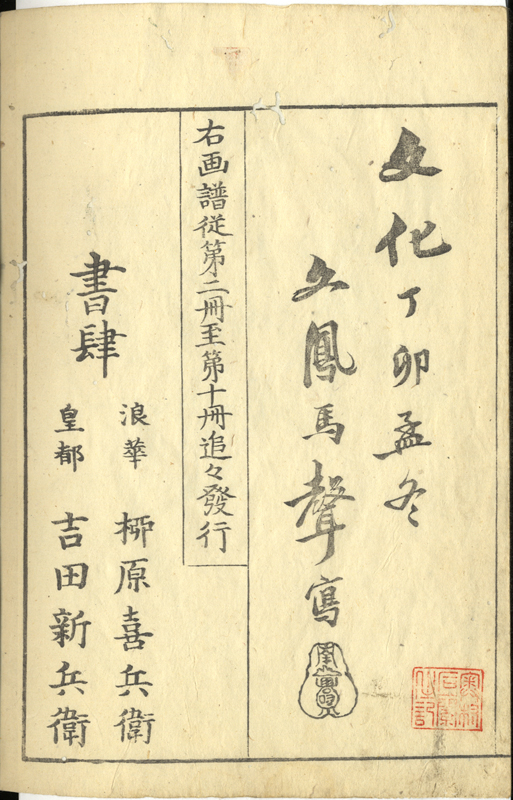 文化丁卯孟冬
文鳳馬聲寫
右画譜従第二冊至第十冊追々發行
書肆
浪華 柳原喜兵衛
皇都 吉田新兵衛